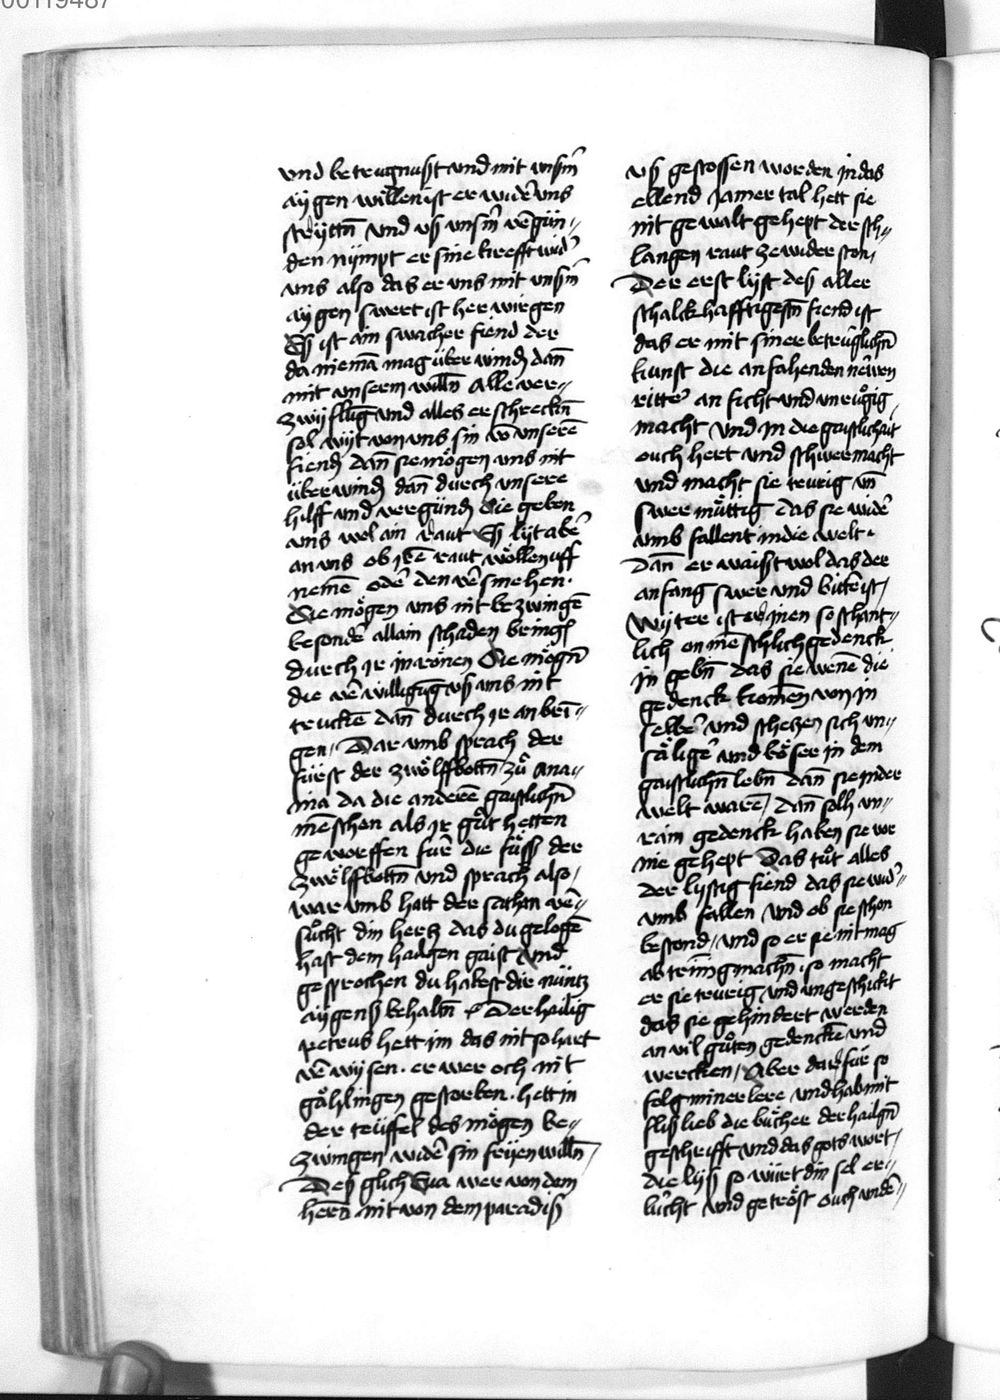 00119487
vnd betrugnust vnd mit vnsm̄
aÿgen willen ist er widē vns
strÿttn̄ vnd vß vnsm̄ vērgün⸗
den nÿmpt er sine krefft wid̄
vns also das er vns mit vnsm̄
aÿgen swert ist her wirgen
Es ist ain swacher fiend der
da niemā mag überwindn̄ dan̄
mit vnserm willn̄ Alle ver⸗
zwÿflūg vnd alles erschreckn̄
sol wÿt von vns sin vō vnserē
fiendn̄ dan̄ sie mögen vns nit
überwindn̄ dan̄ durch vnsere
hilff vnd vergündn̄ Sie geben
vns wol ain raut Es lÿt abē
an vns ob irē raut wöllen uff
nemē oder den vēsmehen.
Sie mögen vns nit bezwingē
besondē allain schaden bringn̄
durch ir inrönen Sie mögn̄
die vēwilligūg vß vns nit
truckē dan̄ durch ir anbrī⸗
gen / Dar vmb sprach der
fürst der zwölffbottn̄ zů Ana⸗
nia da die anderē gaistlichn̄
mēschen als ir gůt hetten
geworffen für die füss der
zwölffbottn̄ vnd sprach also /
war vmb hatt der sathan vē⸗
sůcht din hertz das du gelogē
hast dem hailgen gaist vnd
gesprochen du habest dir nüntz
aÿgens behaltn̄ Der hailig
petrus hett im das nit so hart
vēwÿsen. er wer och nit
gählingen gestorben. hett in
der teüffel des mögen be⸗
zwingen widē sin frÿen willn̄ /
Des glich Eua wer von dem
herē nit von dem paradiß
vß gestossen worden in das
ellend Jamer tal hett sie
nit gewalt gehept der sch⸗
langen raut ze wider ston /
Der erst lÿst des aller
schalckhafftigestn̄ fiend ist
das er mit siner betrüglichn̄
kunst die anfahenden neẅen
ritter an ficht vnd vnrüwig
macht vnd in die gaistlichait
ouch hert vnd schwer macht
vnd macht sie trurig vn̄
swer müttig das sie widē
vmb fallent in die welt.
Dan̄ er waißt wol das der
anfang swer vnd bitter ist /
Wÿter ist er inen so schant⸗
lich onmēschlich gedenck
in gebn̄ das sie wenē die
gedenck komen von in
selber vnd schetzen sich vn⸗
säliger vnd böser in dem
gaistlichn̄ lebn̄ dan̄ sie in der
welt warē / dan̄ solh vn⸗
rain gedenck haben sie vor
nie gehept Das tůt alles
der lÿstig fiend das sie wid̄⸗
vmb fallen vnd ob sie schon
bestond / vnd so er sie nit mag
abtrinīg machn̄ so macht
er sie trurig vnd vngeschickt
das sie gehindert werden
an vil gůten gedenckē vnd
wercken / Aber darfür so
folg miner lere vnd hab mit
fliß lieb die bücher der hailgn̄
geschrifft vnd das gots wort /
die lÿß so würt din sel er⸗
lücht vnd getröst ouch widē⸗